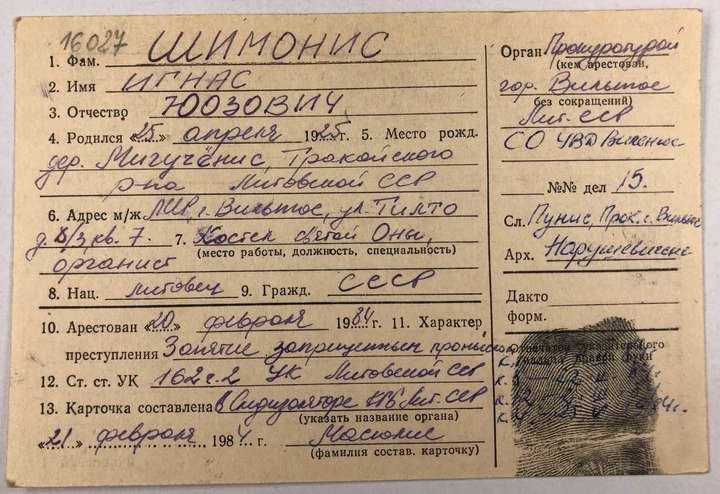 16027
1. Фам. ШИМОНИС
2. Имя ИГНАС
3. Отчество ЮОЗОВИЧ
4. Родился «25» апреля 1925 г. 5. Место рожд.
дер. Мигучёнис, Тракайского
р-на Литовской ССР
6. Адрес м/ж г. Вильнюс, ул. Тилто
д. 8/3 кв. 7. 7. Костел святой Оны,
(место работы, должность, специальность)
органист
8. Нац. литовец 9. Гражд. СССР
10. Арестован «20» февраля 1984 г. 11. Характер
преступления Занятие запрещенным промыслом
12. Ст. ст. УК 162 ч. 2 УК Литовской ССР
13. Карточка составлена в Лит. ССР
(указать название органа)
«21» февраля 1984 г.
(фамилия состав. карточку)
Орган Прокуратурой
(кем арестован,
гор. Вильнюс
без сокращений)
Лит. ССР
СО УВД Вильнюс
№№ дел 15.
Сл. Пунис, Прок. г. Вильнюс
Арх.
Дакто
форм.